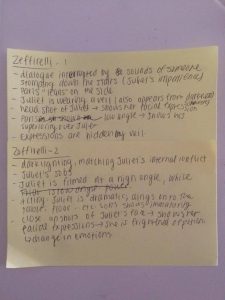 Zeffirelli - 1
- dialogue interrupted by sounds of someone
stomping down the stairs (Juliet's impatience)
- Paris "leans" on the side
- Juliet is wearing a veil (also appears from darkness)
- head shot of Juliet → shows her facial expression
- Paris low angle → shows his
superiority over Juliet
- Expressions are hidden by veil
Zeffirelli - 2
- dark lighting, matching Juliet's internal conflict
- Juliet's sobs
- Juliet is filmed at a high angle, while
- acting: Juliet is dramatic, clings onto the
floor etc sobs shows immaturity
- close up shots of Juliet's face → shows her
facial expressions → she is frightened
+ change in emotions